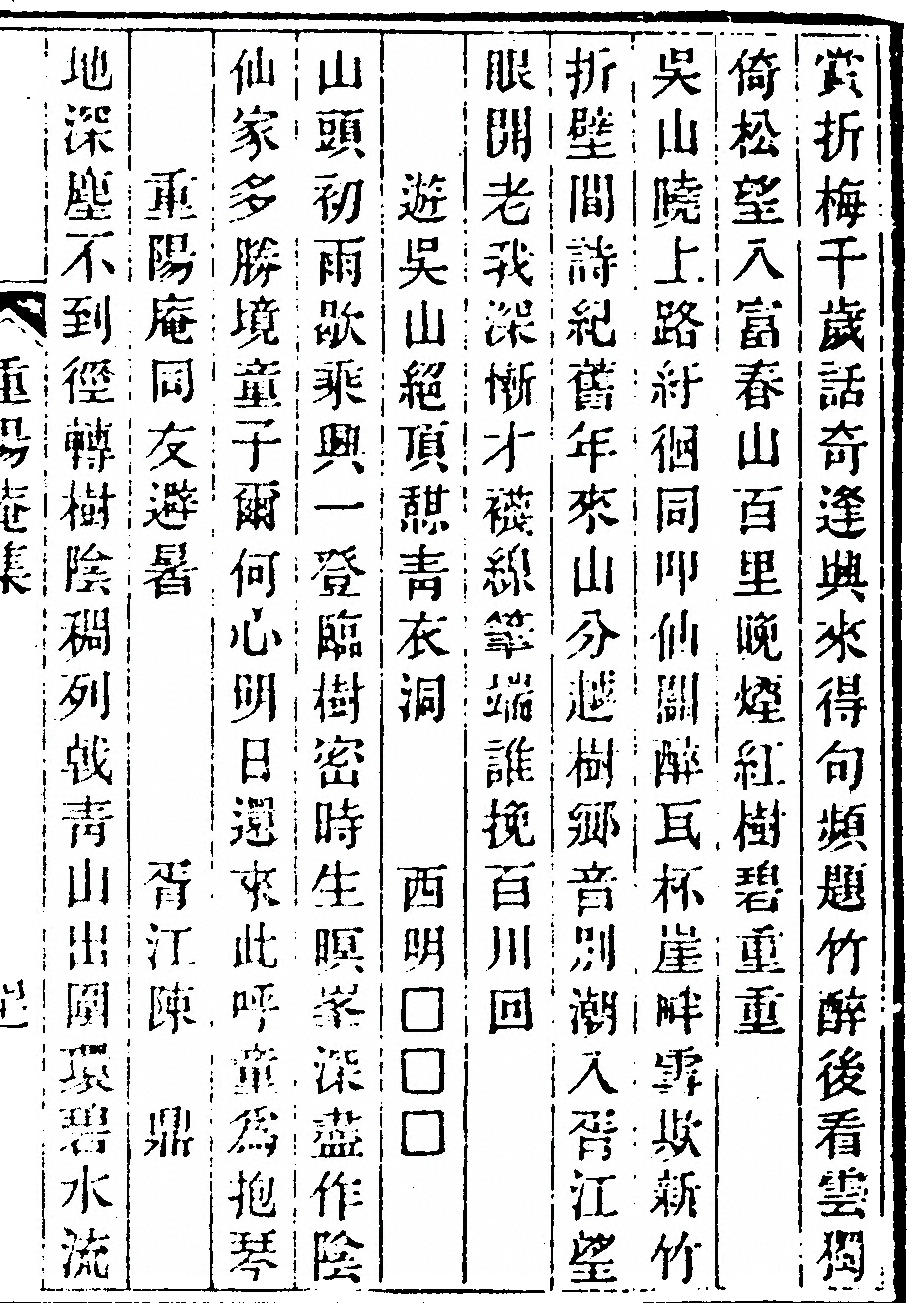 賞折梅千歲話奇逢興來得句頻題竹醉後看雲獨
倚松望入富春山百里晚煙紅樹碧重重
吳山曉上路紆徊同叩仙關醉瓦杯崖畔雪欺新竹
折壁間詩紀舊年來山分越樹鄉音別潮入胥江望
眼開老我深慚才襪線筆端誰挽百川回
遊吳山絕頂憇青衣洞 西明□□□
山頭初雨歇乘興一登臨樹密時生暝峯深盡作陰
仙家多勝境童子爾何心明日還來此呼童為抱琴
重陽庵同友避暑 胥江陳 鼎
地深塵不到徑轉樹陰稠列戟青山出圍環碧水流
重陽庵集